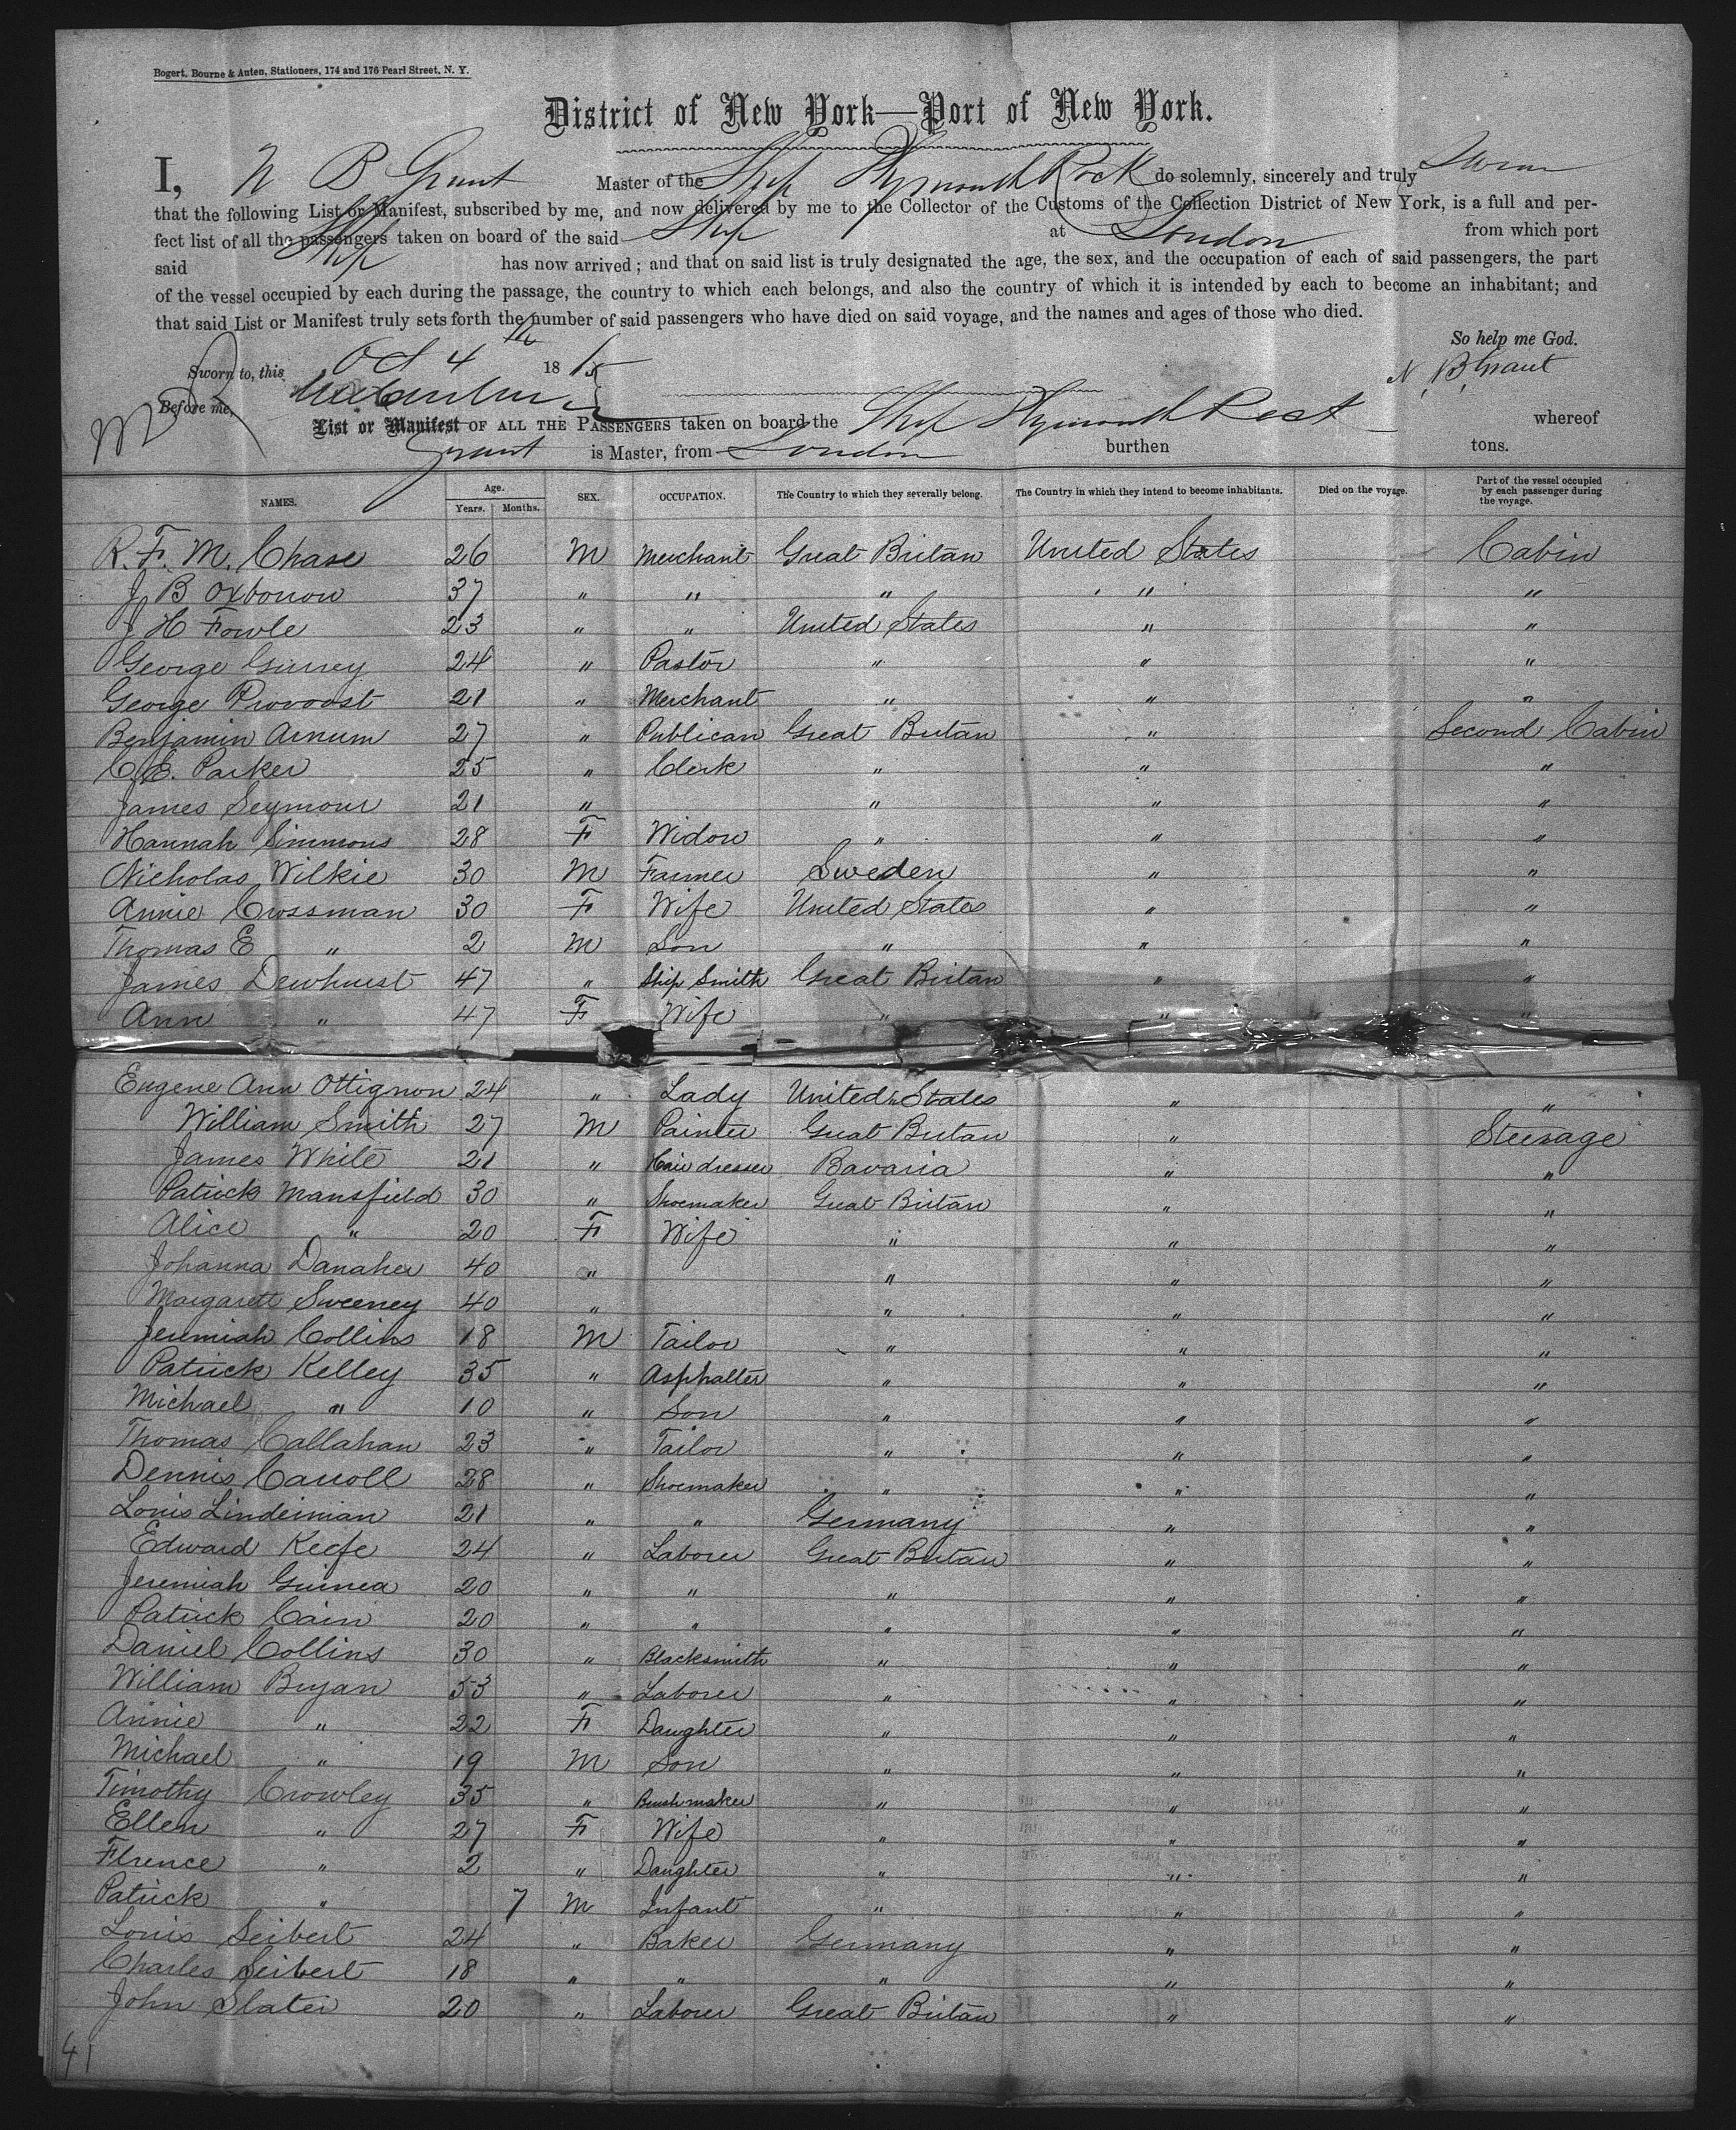 Bogert, Bourne & Auten, Stationers, 174 and 176 Pearl Street, N. Y.
District of New York—Port of New York.
I, N B Grant Master of the Ship Plymouth Rock do solemnly, sincerely and truly Swear
that the following List or Manifest, subscribed by me, and now delivered by me to the Collector of the Customs of the Collection District of New York, is a full and per-
fect list of all the passengers taken on board of the said Ship at London from which port
said Ship has now arrived; and that on said list is truly designated the age, the sex, and the occupation of each of said passengers, the part
of the vessel occupied by each during the passage, the country to which each belongs, and also the country of which it is intended by each to become an inhabitant; and
that said List or Manifest truly sets forth the number of said passengers who have died on said voyage, and the names and ages of those who died.
So help me God.
Sworn to, this Oct 4th 18 N B Grant
Before me,
List or Manifest OF ALL THE PASSENGERS taken on board the Ship Plymouth Rock whereof
Grant is Master, from London burthen tons.
NAMES. Age. Years. Months. SEX. OCCUPATION. The Country to which they severally belong. The Country in which they intend to become inhabitants. Died on the voyage. Part of the vessel occupied by each passenger during the voyage.
R. F. M. Chase 26 M Merchant Great Britan United States Cabin
J B Oxborrow 37 " " " " "
J H Fowle 23 " " United States " "
George Gurrey 24 " Pastor " " "
George Provoost 21 " Merchant " " "
Benjamin Arnum 27 " Publican Great Britan " Second Cabin
C. E. Parker 25 " Clerk " " "
James Seymour 21 " " " "
Hannah Simmons 28 F Widow " " "
Nicholas Wilkie 30 M Farmer Sweden " "
Annie Crossman 30 F Wife United States " "
Thomas E " 2 M Son " " "
James Dewhurst 47 " Ship Smith Great Britan " "
Ann " 47 F Wife " " "
Eugene Ann Ottignon 24 " Lady United States " "
William Smith 27 M Painter Great Britan " Steerage
James White 21 " Hair dresser Bavaria " "
Patrick Mansfield 30 " Shoemaker Great Britan " "
Alice " 20 F Wife " " "
Johanna Danaher 40 " " " "
Margarett Sweeney 40 " " " "
Jeremiah Collins 18 M Tailor " " "
Patrick Kelley 35 " Asphalter " " "
Michael " 10 " Son " " "
Thomas Callahan 23 " Tailor " " "
Dennis Carroll 28 " Shoemaker " " "
Louis Lindeiman 21 " " Germany " "
Edward Keefe 24 " Laborer Great Britan " "
Jeremiah Guinea 20 " " " " "
Patrick Cain 20 " " " " "
Daniel Collins 30 " Blacksmith " " "
William Bryan 53 " Laborer " " "
Annie " 22 F Daughter " " "
Michael " 19 M Son " " "
Timothy Crowley 35 " Brushmaker " " "
Ellen " 27 F Wife " " "
Flrence " 2 " Daughter " " "
Patrick " 7 M Infant " " "
Louis Seibert 24 " Baker Germany " "
Charles Seibert 18 " " " " "
John Slater 20 " Laborer Great Britan " "
41